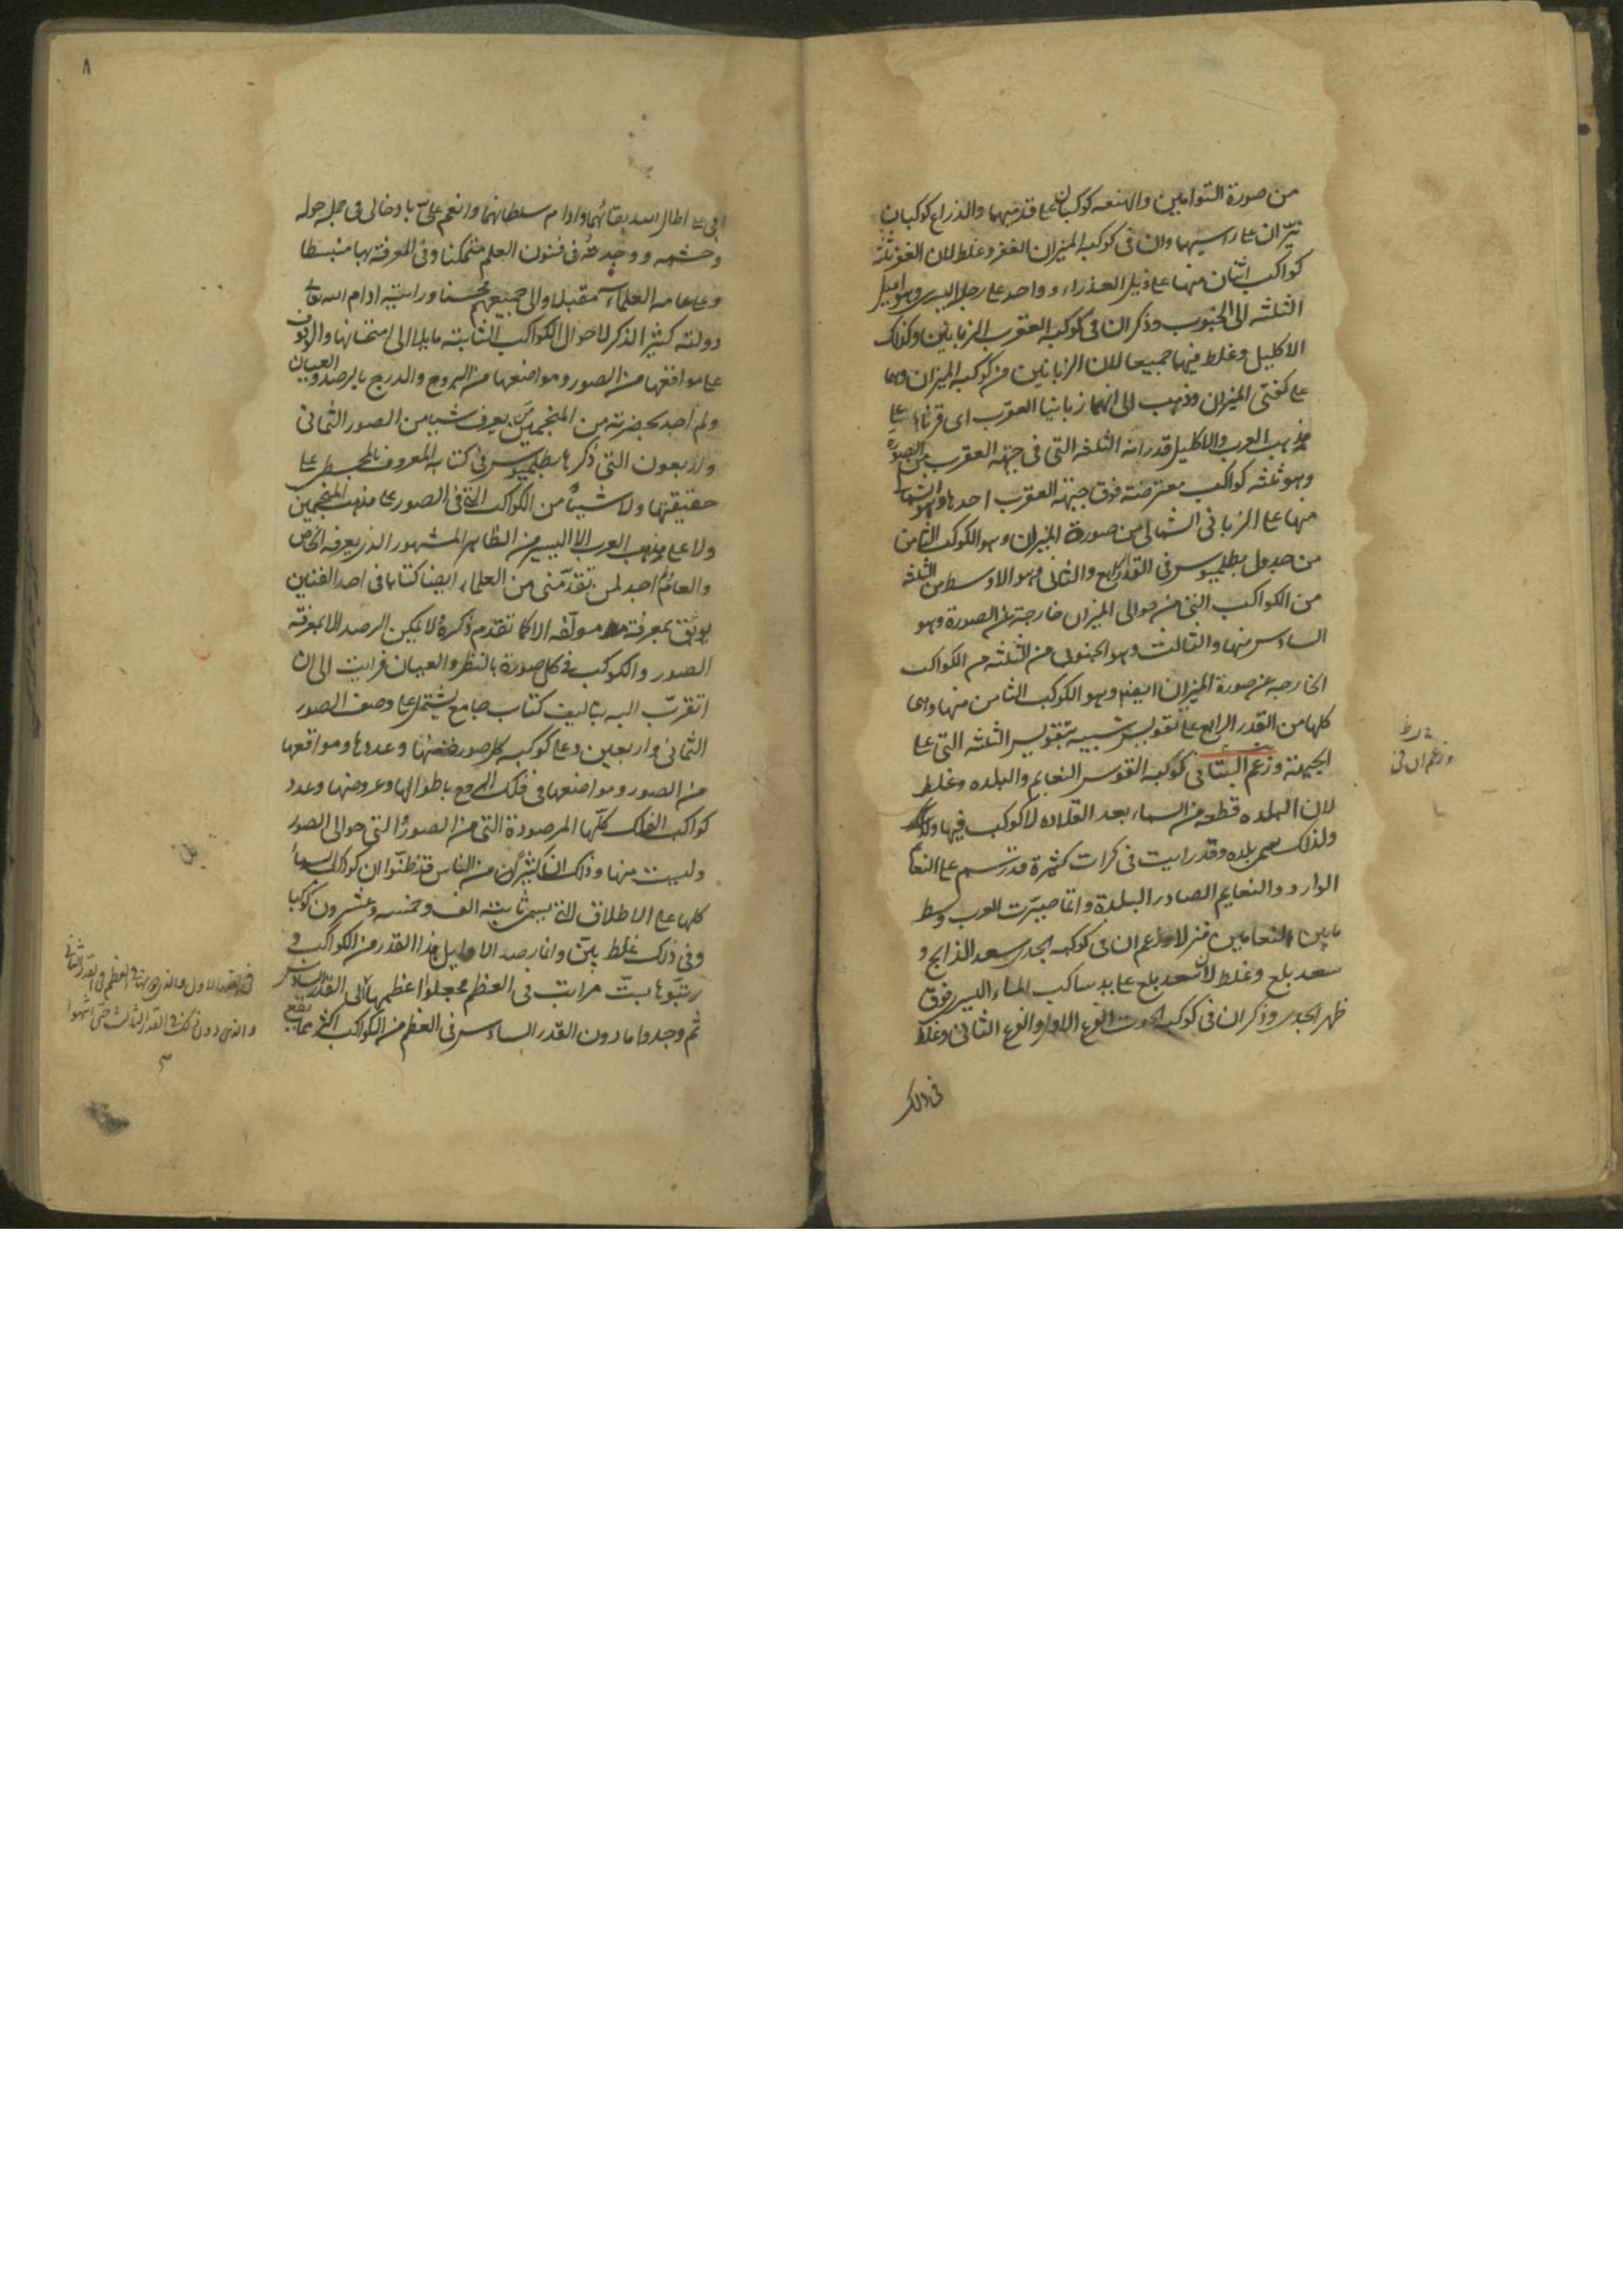 من صورة التوامين والهنعه كوكبان على قدميهما والذراع كوكبان
نيّران على راسيهما وان فى كوكبه الميزان الغفر وغلط لان الغفر ثلثة
كواكب اثنان منها على ذيل العذراء وواحد على رجلها اليسرى وهو اميل
الثلثه الى الجنوب وذكر ان فى كوكبه العقرب الزبانين وكذلك
الاكليل وغلط فيهما جميعا لان الزبانين من كوكبه الميزان وهما
على كفتى الميزان وذهب الى انهما زبانيا العقرب اى قرناها على
مذهب العرب والاكليل قدر انه الثلثة التى فى جبهة العقرب من الصورة
وهو ثلثه كواكب معترضة فوق جبهة العقرب احدها وهو الشمالى
منها على الزبانى الشمالى من صورة الميزان وهو الكوكب الثامن
من جدول بطلميوس فى القدر الرابع والثانى وهو الاوسط من الثلثة
من الكواكب التى من حوالى الميزان خارجة عن الصورة وهو
السادس منها والثالث وهو الجنوبى من الثلثه من الكواكب
الخارجه عن صورة الميزان ايضا وهو الكوكب الثامن منها وهى
كلها من القدر الرابع على تقويس شبيه بتقويس الثلثه التى على
الجبهة وزعم البتانى كوكبه القوس النعايم والبلده وغلط
لان البلده قطعه من السماء بعد القلاده لا كوكب فيها
ولذلك سمى بلده وقد رايت فى كرات كثيرة قد رسم على النعايم
الوارد والنعايم الصادر البلدة وانما صيّرت العرب وسط
مابين النعامين منزلا وزعم ان فى كوكبه الجدى سعد الذابح و
سعد بلع وغلط لان سعد بلع على يد ساكب الماء اليسرى فوق
ظهر الجدى وذكر ان فى كوكبه الحوت الفرغ الاول والفرغ الثانى وغلط
فى ذلك
وزعم ان فى
٨
اطال الله بقائهما وادام سلطانهما وانعم علىّ بادخالى فى جمله خوله
وحشمه ووجدته فى فنون العلم متمكنا وفى المعرفة بها منبسطا
وعلى عامه العلماء مقبلا والى جميعهم محسنا ورايته ادام الله تعالى
دولته كثير الذكر لاحوال الكواكب الثابته مايلا الى امتحانها والوقوف
على مواقعها من الصور ومواضعها من البروج والدرج بالرصد والعيان
ولم اجد بحضرته من المنجمين من يعرف شيئا من الصور الثمانى
والاربعون التى ذكرها بطلميوس فى كتابه المعروف بالمجسطى على
حقيقتها ولا شيئا من الكواكب التى فى الصور على مذهب المنجمين
ولا على مذهب العرب الا اليسير من الظاهر المشهور الذى يعرفه الخاص
والعام ولم اجد لمن تقدّمنى من العلماء ايضا كتابا فى احد الفنين
يوثق بمعرفة مولّفه الا كما تقدم ذكره ولا يمكن الرصد الا بمعرفة
الصور والكوكب فى كل صورة بالنظر والعيان فرايت الى ان
اتقرّب اليه بتاليف كتاب جامع يشتمل على وصف الصور
الثمانى واربعين وعلى كوكبه كل صورة منها وعددها ومواقعها
من الصور ومواضعها فى فلك البروج باطوالها وعروضها وعدد
كواكب الفلك كلّها المرصودة التى من الصور والتى حوالى الصور
وليست منها وذلك ان كثيرا من الناس قد ظنّوا ان كواكب السماء
كلها على الاطلاق التى يسمى ثابتة الف وخمسه وعشرون كوكبا
وفى ذلك غلط بيّن وانما رصد الاوايل هذا القدر من الكواكب و
رتبوها ستّ مراتب فى العظم فجعلوا اعظمها فى القدر السادس
ثم وجدوا ما دون القدر السادس فى العظم من الكواكب اكثر مما يقع
القدر الاول والذى دونها فى العظم فى القدر الثانى
والذى دون ذلك فى القدر الثالث حتى انتهوا